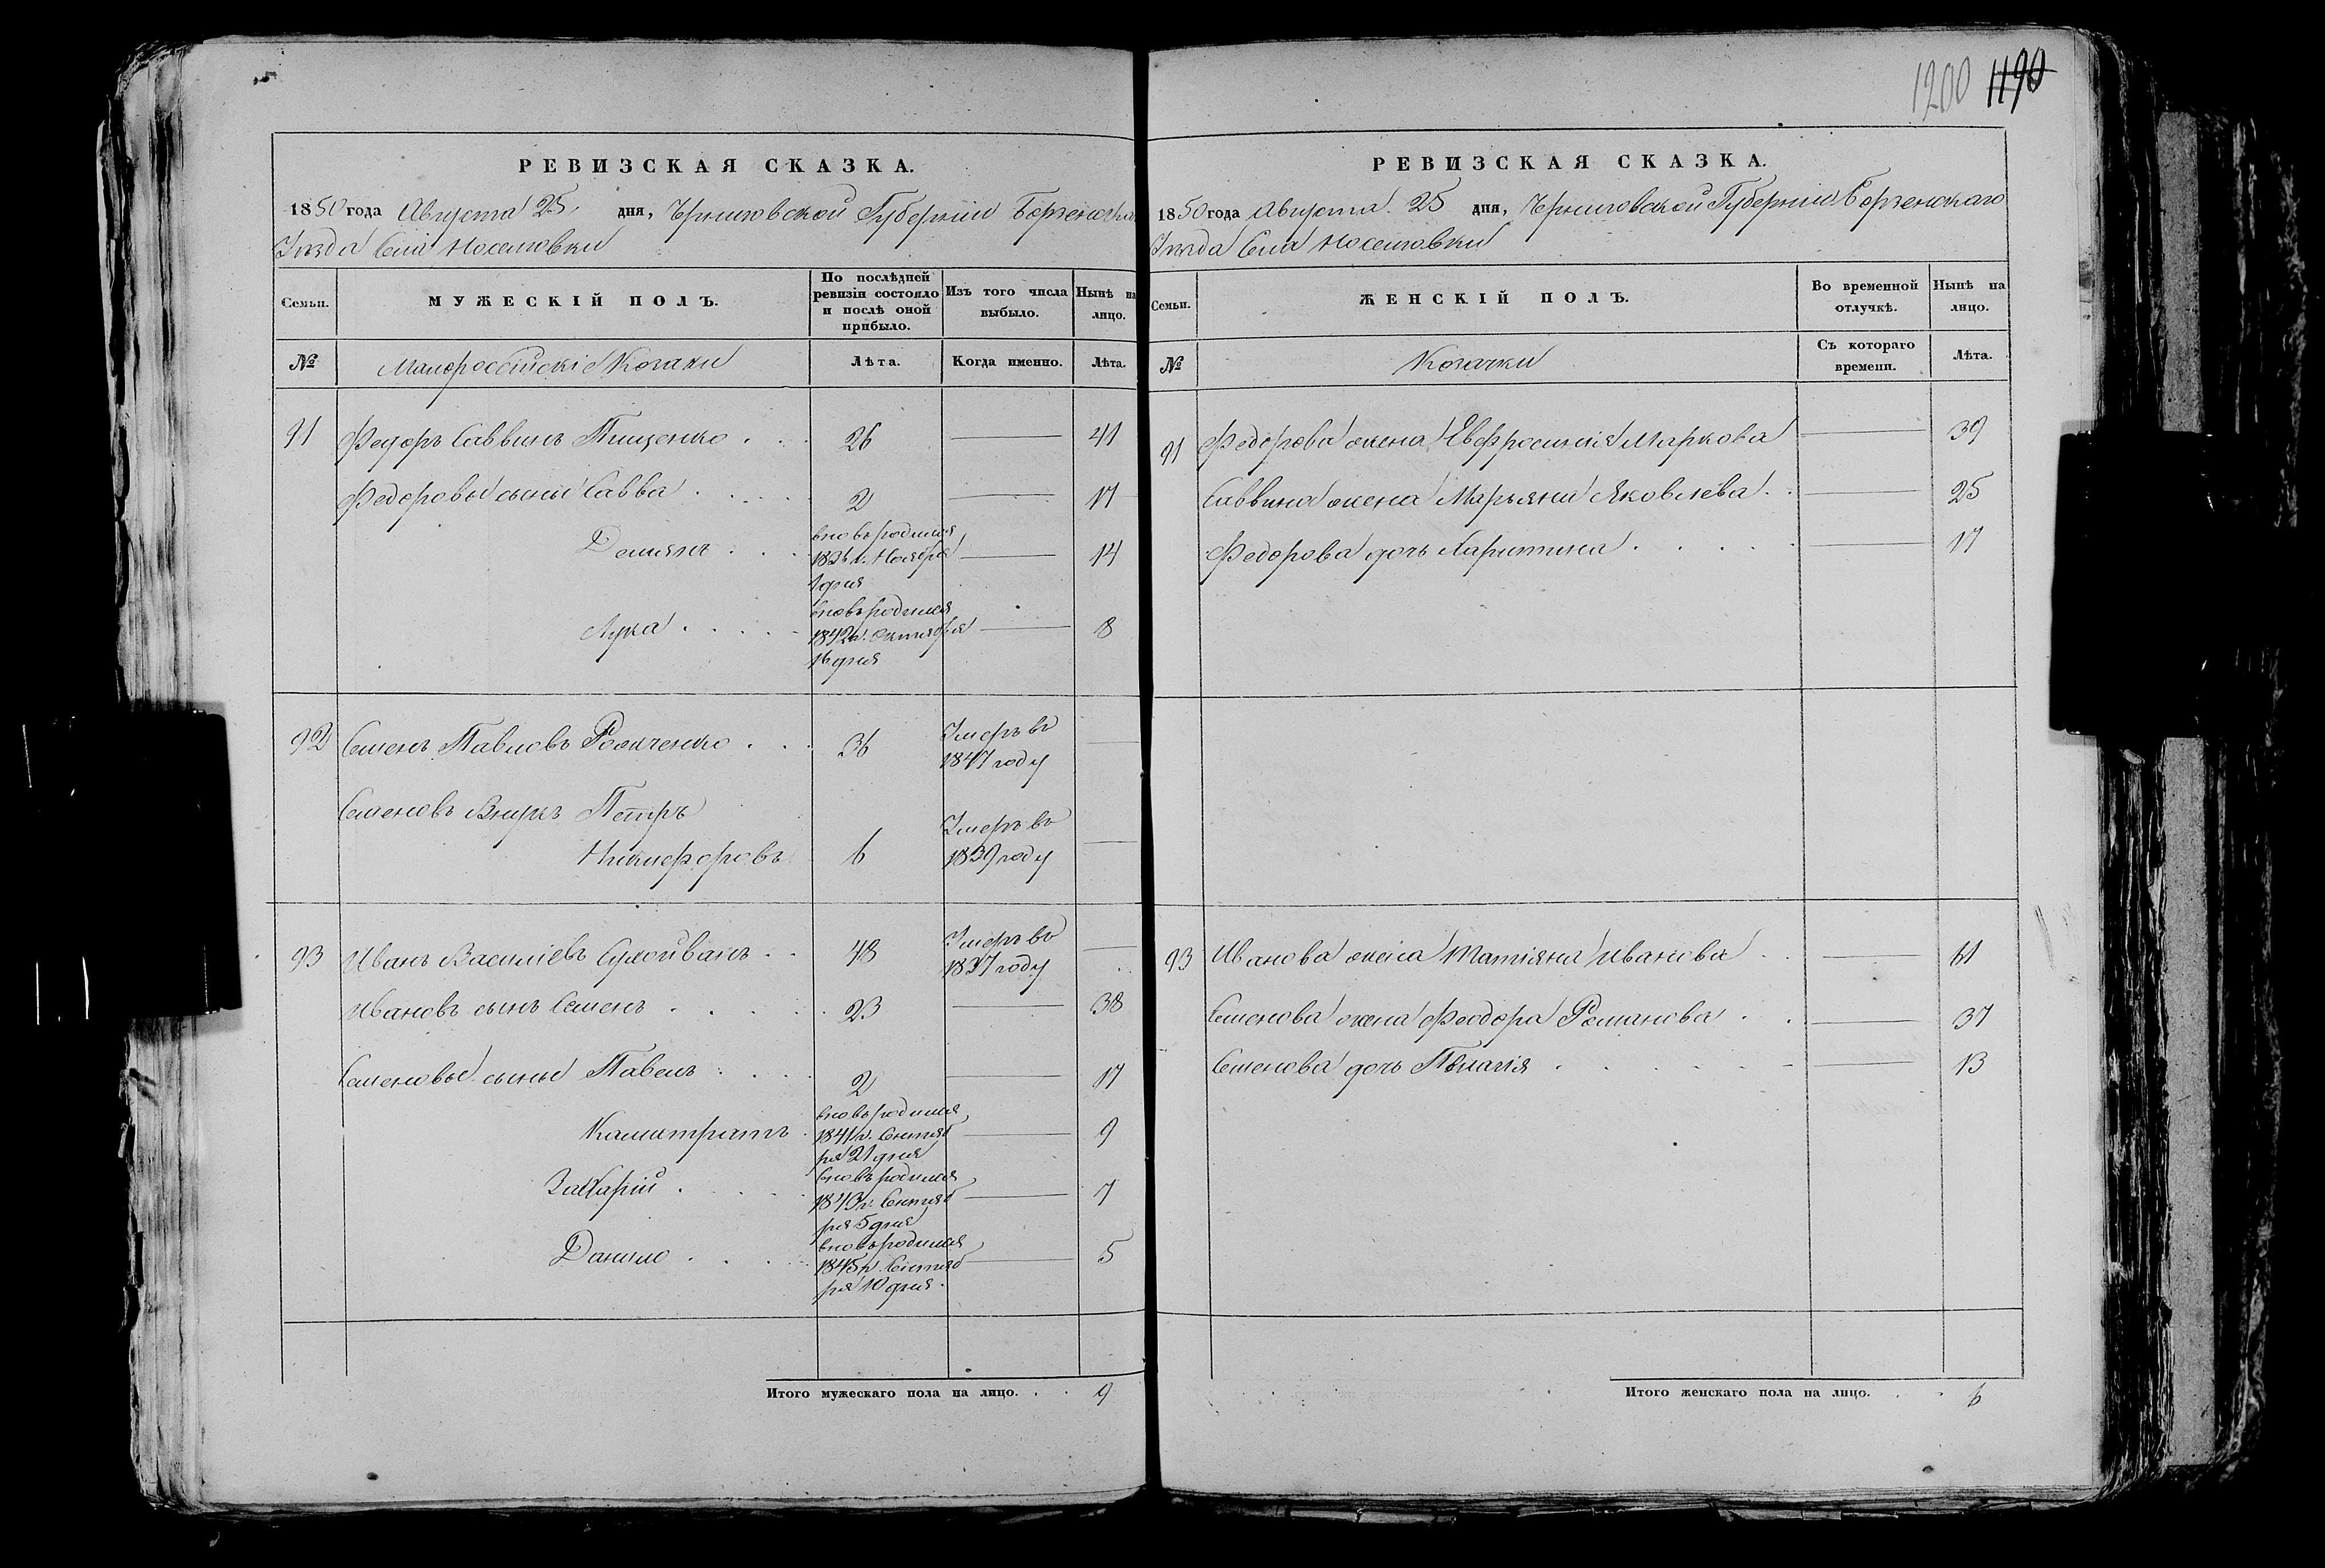 1200 1190
РЕВИЗСКАЯ СКАЗКА.
1850 года Августа 25 дня, Черниговской Губерніи Борзенскаго
Уѣзда Села Носеловки
Семьи.
МУЖЕСКІЙ ПОЛЪ.
По послѣдней ревизіи состояло и послѣ оной прибыло.
Изъ того числа выбыло.
Нынѣ на лицо.
№
Малороссійскіе Козаки
Лѣта.
Когда именно.
Лѣта.
91 Федоръ Саввинъ Пищенко 26 41
Федоровы сыны Савва 2 17
Демянъ вновь родился 14
1836 г. Ноября
1 дня
Лука вновь родился 8
1842 г. Октября
16 дня
92 Семенъ Павловъ Ромченко 36 Умеръ въ
1847 году
Семеновъ Внукъ Петръ
Никифоровъ 6 Умеръ въ
1839 году
93 Иванъ Василіевъ Сухоиванъ 48 Умеръ въ
1837 году
Ивановъ сынъ Семенъ 23 38
Семеновы сыны Павелъ 2 17
Калистратъ вновь родился 9
1841 г. Сентяб
ря 21 дня
Захарій вновь родился 7
1843 г. Сентяб
ря 5 дня
Данило вновь родился 5
1845 г. Сентяб
ря 10 дня.
Итого мужескаго пола на лицо. 9
РЕВИЗСКАЯ СКАЗКА.
1850 года Августа 25 дня, Черниговской Губерніи Борзенскаго
Уѣзда Села Носеловки
Семьи.
ЖЕНСКІЙ ПОЛЪ.
Во временной отлучкѣ.
Нынѣ на лицо.
№
Козачки
Съ котораго времени.
Лѣта.
91 Федорова жена Евфросинія Маркова 39
Саввина жена Марьяна Яковлева 25
Федорова дочь Харитина 17
93 Иванова жена Татіяна Иванова 61
Семенова жена Феодора Романова 37
Семенова дочь Пелагія 13
Итого женскаго пола на лицо. 6